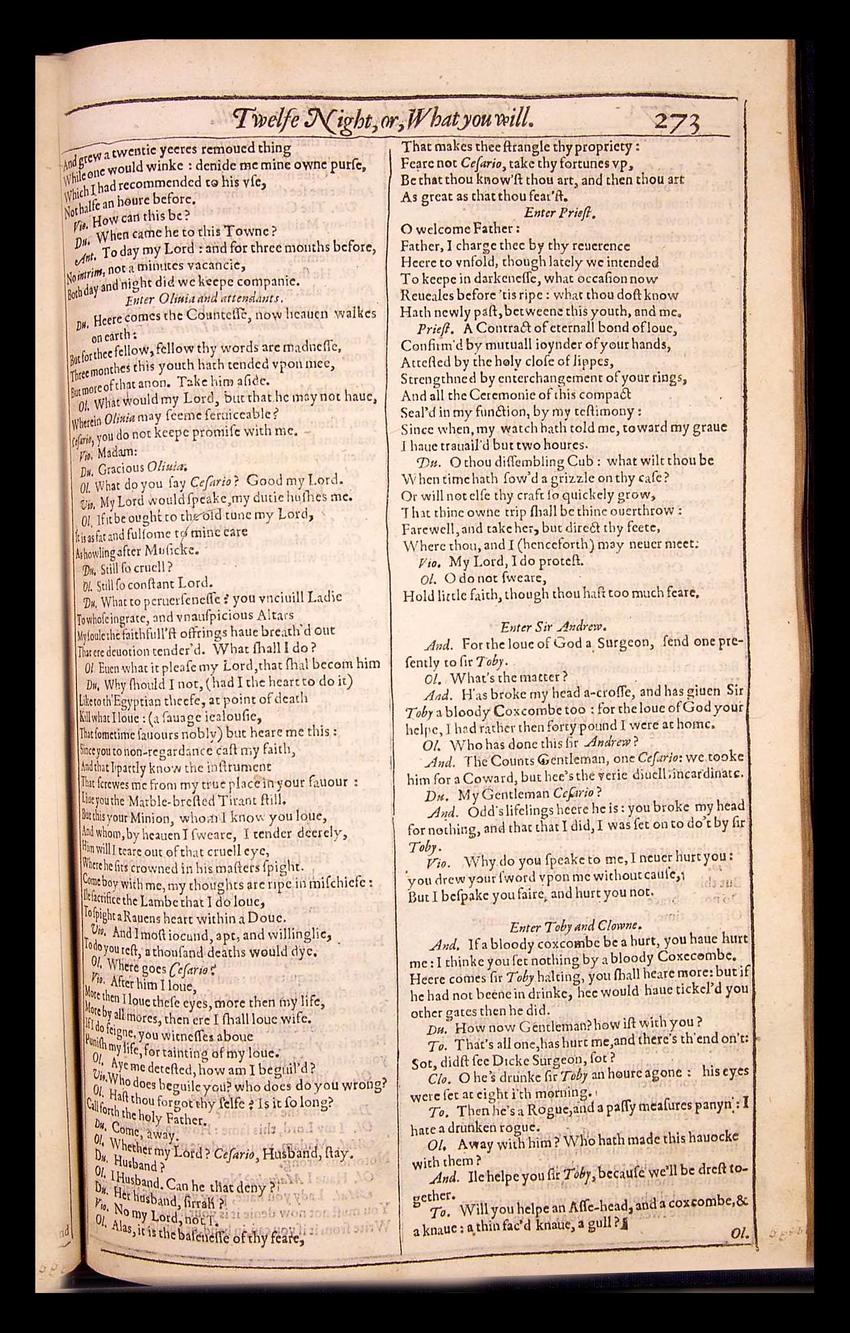 Twelfe Night, or, What you will. 273
And grew a twentie yeeres remoued thing
While one would winke : denide me mine owne purſe,
Which I had recommended to his vſe,
Not halfe an houre before.
Vio. How can this be?
Du. When came he to this Towne?
Ant. To day my Lord : and for three months before,
No intrim, not a minutes vacancie,
Both day and night did we keepe companie.
Enter Oliuia and attendants.
Du. Heere comes the Counteſſe, now heauen walkes
on earth :
But for thee fellow, fellow thy words are madneſſe,
Three monthes this youth hath tended vpon mee,
But more of that anon. Take him aſide.
Ol. What would my Lord, but that he may not haue,
Wherein Oliuia may ſeeme ſeruiceable?
Ceſario, you do not keepe promiſe with me.
Vio. Madam:
Du. Gracious Oliuia.
Ol. What do you ſay Ceſario? Good my Lord.
Vio. My Lord would ſpeake, my dutie huſhes me.
Ol. If it be ought to the old tune my Lord,
It is as fat and fulſome to mine eare
As howling after Muſicke.
Du. Still ſo cruell?
Ol. Still ſo conſtant Lord.
Du. What to peruerſeneſſe? you vnciuill Ladie
To whoſe ingrate, and vnauſpicious Altars
My ſoule the faithfull'ſt offrings haue breath'd out
That ere deuotion tender'd. What ſhall I do?
Ol. Euen what it pleaſe my Lord, that ſhal becom him
Du. Why ſhould I not, (had I the heart to do it)
Like to th'Egyptian theefe, at point of death
Kill what I loue : (a ſauage iealouſie,
That ſometime ſauours nobly) but heare me this :
Since you to non-regardance caſt my faith,
And that I partly know the inſtrument
That ſcrewes me from my true place in your fauour :
Liue you the Marble-breſted Tirant ſtill.
But this your Minion, whom I know you loue,
And whom, by heauen I ſweare, I tender deerely,
Him will I teare out of that cruell eye,
Where he ſits crowned in his maſters ſpight.
Come boy with me, my thoughts are ripe in miſchiefe :
Ile ſacrifice the Lambe that I do loue,
To ſpight a Rauens heart within a Doue.
Vio. And I moſt iocund, apt, and willinglie,
To do you reſt, a thouſand deaths would dye.
Ol. Where goes Ceſario?
Vio. After him I loue,
More then I loue theſe eyes, more then my life,
More by all mores, then ere I ſhall loue wife.
If I do feigne, you witneſſes aboue
Puniſh my life, for tainting of my loue.
Ol. Aye me deteſted, how am I beguil'd?
Vio. Who does beguile you? who does do you wrong?
Ol. Haſt thou forgot thy ſelfe? Is it ſo long?
Call forth the holy Father.
Du. Come, away.
Ol. Whether my Lord? Ceſario, Husband, ſtay.
Du. Husband?
Ol. I Husband. Can he that deny?
Du. Her husband, ſirrah?
Vio. No my Lord, not I.
Ol. Alas, it is the baſeneſſe of thy feare,
That makes thee ſtrangle thy propriety :
Feare not Ceſario, take thy fortunes vp,
Be that thou know'ſt thou art, and then thou art
As great as that thou fear'ſt.
Enter Prieſt.
O welcome Father :
Father, I charge thee by thy reuerence
Heere to vnfold, though lately we intended
To keepe in darkeneſſe, what occaſion now
Reueales before 'tis ripe : what thou doſt know
Hath newly paſt, betweene this youth, and me.
Prieſt. A Contract of eternall bond of loue,
Confirm'd by mutuall ioynder of your hands,
Atteſted by the holy cloſe of lippes,
Strengthned by enterchangement of your rings,
And all the Ceremonie of this compact
Seal'd in my function, by my teſtimony :
Since when, my watch hath told me, toward my graue
I haue trauail'd but two houres.
Du. O thou diſſembling Cub : what wilt thou be
When time hath ſow'd a grizzle on thy caſe?
Or will not elſe thy craft ſo quickely grow,
That thine owne trip ſhall be thine ouerthrow :
Farewell, and take her, but direct thy feete,
Where thou, and I (henceforth) may neuer meet.
Vio. My Lord, I do proteſt.
Ol. O do not ſweare,
Hold little faith, though thou haſt too much feare.
Enter Sir Andrew.
And. For the loue of God a Surgeon, ſend one pre-
ſently to ſir Toby.
Ol. What's the matter?
And. H'as broke my head a-croſſe, and has giuen Sir
Toby a bloody Coxcombe too : for the loue of God your
helpe, I had rather then forty pound I were at home.
Ol. Who has done this ſir Andrew?
And. The Counts Gentleman, one Ceſario: we tooke
him for a Coward, but hee's the verie diuell, incardinate.
Du. My Gentleman Ceſario?
And. Odd's lifelings heere he is : you broke my head
for nothing, and that that I did, I was ſet on to do't by ſir
Toby.
Vio. Why do you ſpeake to me, I neuer hurt you :
you drew your ſword vpon me without cauſe,
But I beſpake you faire, and hurt you not.
Enter Toby and Clowne.
And. If a bloody coxcombe be a hurt, you haue hurt
me : I thinke you ſet nothing by a bloody Coxecombe.
Heere comes ſir Toby halting, you ſhall heare more: but if
he had not beene in drinke, hee would haue tickel'd you
other gates then he did.
Du. How now Gentleman? how iſt with you?
To. That's all one, has hurt me, and there's th'end on't:
Sot, didſt ſee Dicke Surgeon, ſot?
Clo. O he's drunke ſir Toby an houre agone : his eyes
were ſet at eight i'th morning.
To. Then he's a Rogue, and a paſſy meaſures panyn : I
hate a drunken rogue.
Ol. Away with him? Who hath made this hauocke
with them?
And. Ile helpe you ſir Toby, becauſe we'll be dreſt to-
gether.
To. Will you helpe an Aſſe-head, and a coxcombe, &
a knaue : a thin fac'd knaue, a gull?
Ol.